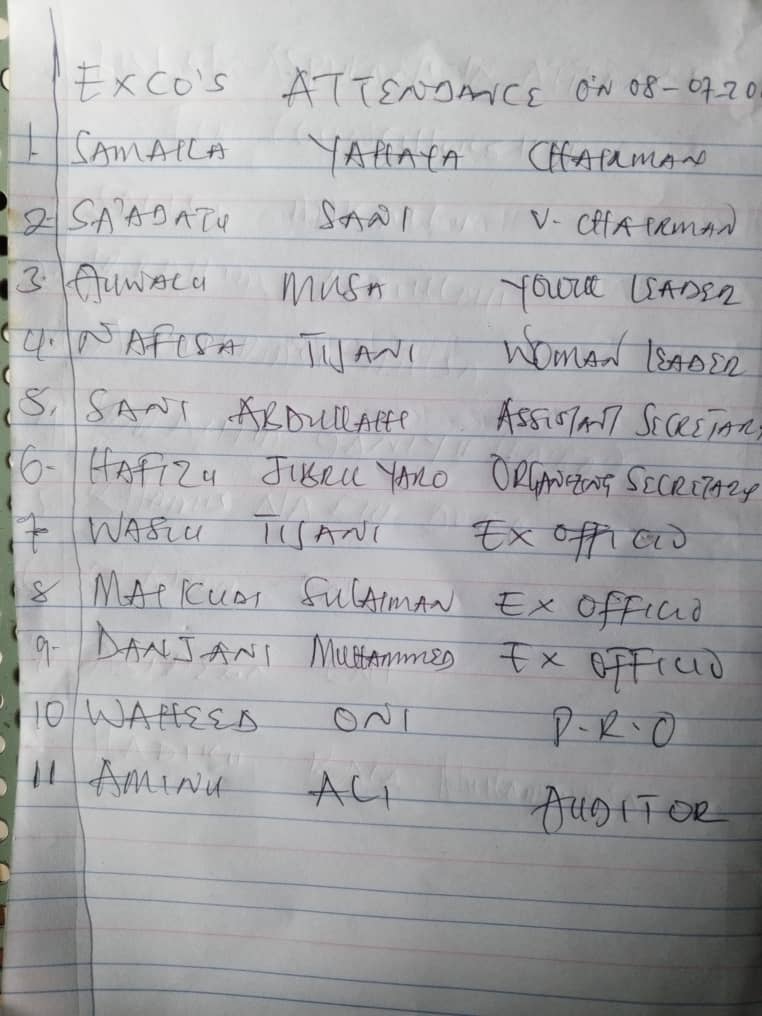 EXCO'S ATTENDANCE ON 08-07-20
1. SAMAILA YAHAYA CHAIRMAN
2- SA'ADATU SANI V- CHAIRMAN
3. AUWALU MUSA YOUTH LEADER
4. NAFISA TIJANI WOMAN LEADER
5. SANI ABDULLAHI ASSISTANT SECRETARY
6- HAFIZU JIBRIL YARO ORGANIZING SECRETARY
7 WASIU TIJANI EX OFFICIO
8 MAIKUDI SULAIMAN EX OFFICIO
9- DANJANI MUHAMMED EX OFFICIO
10 WAHEED ONI P.R.O
11 AMINU ALI AUDITOR